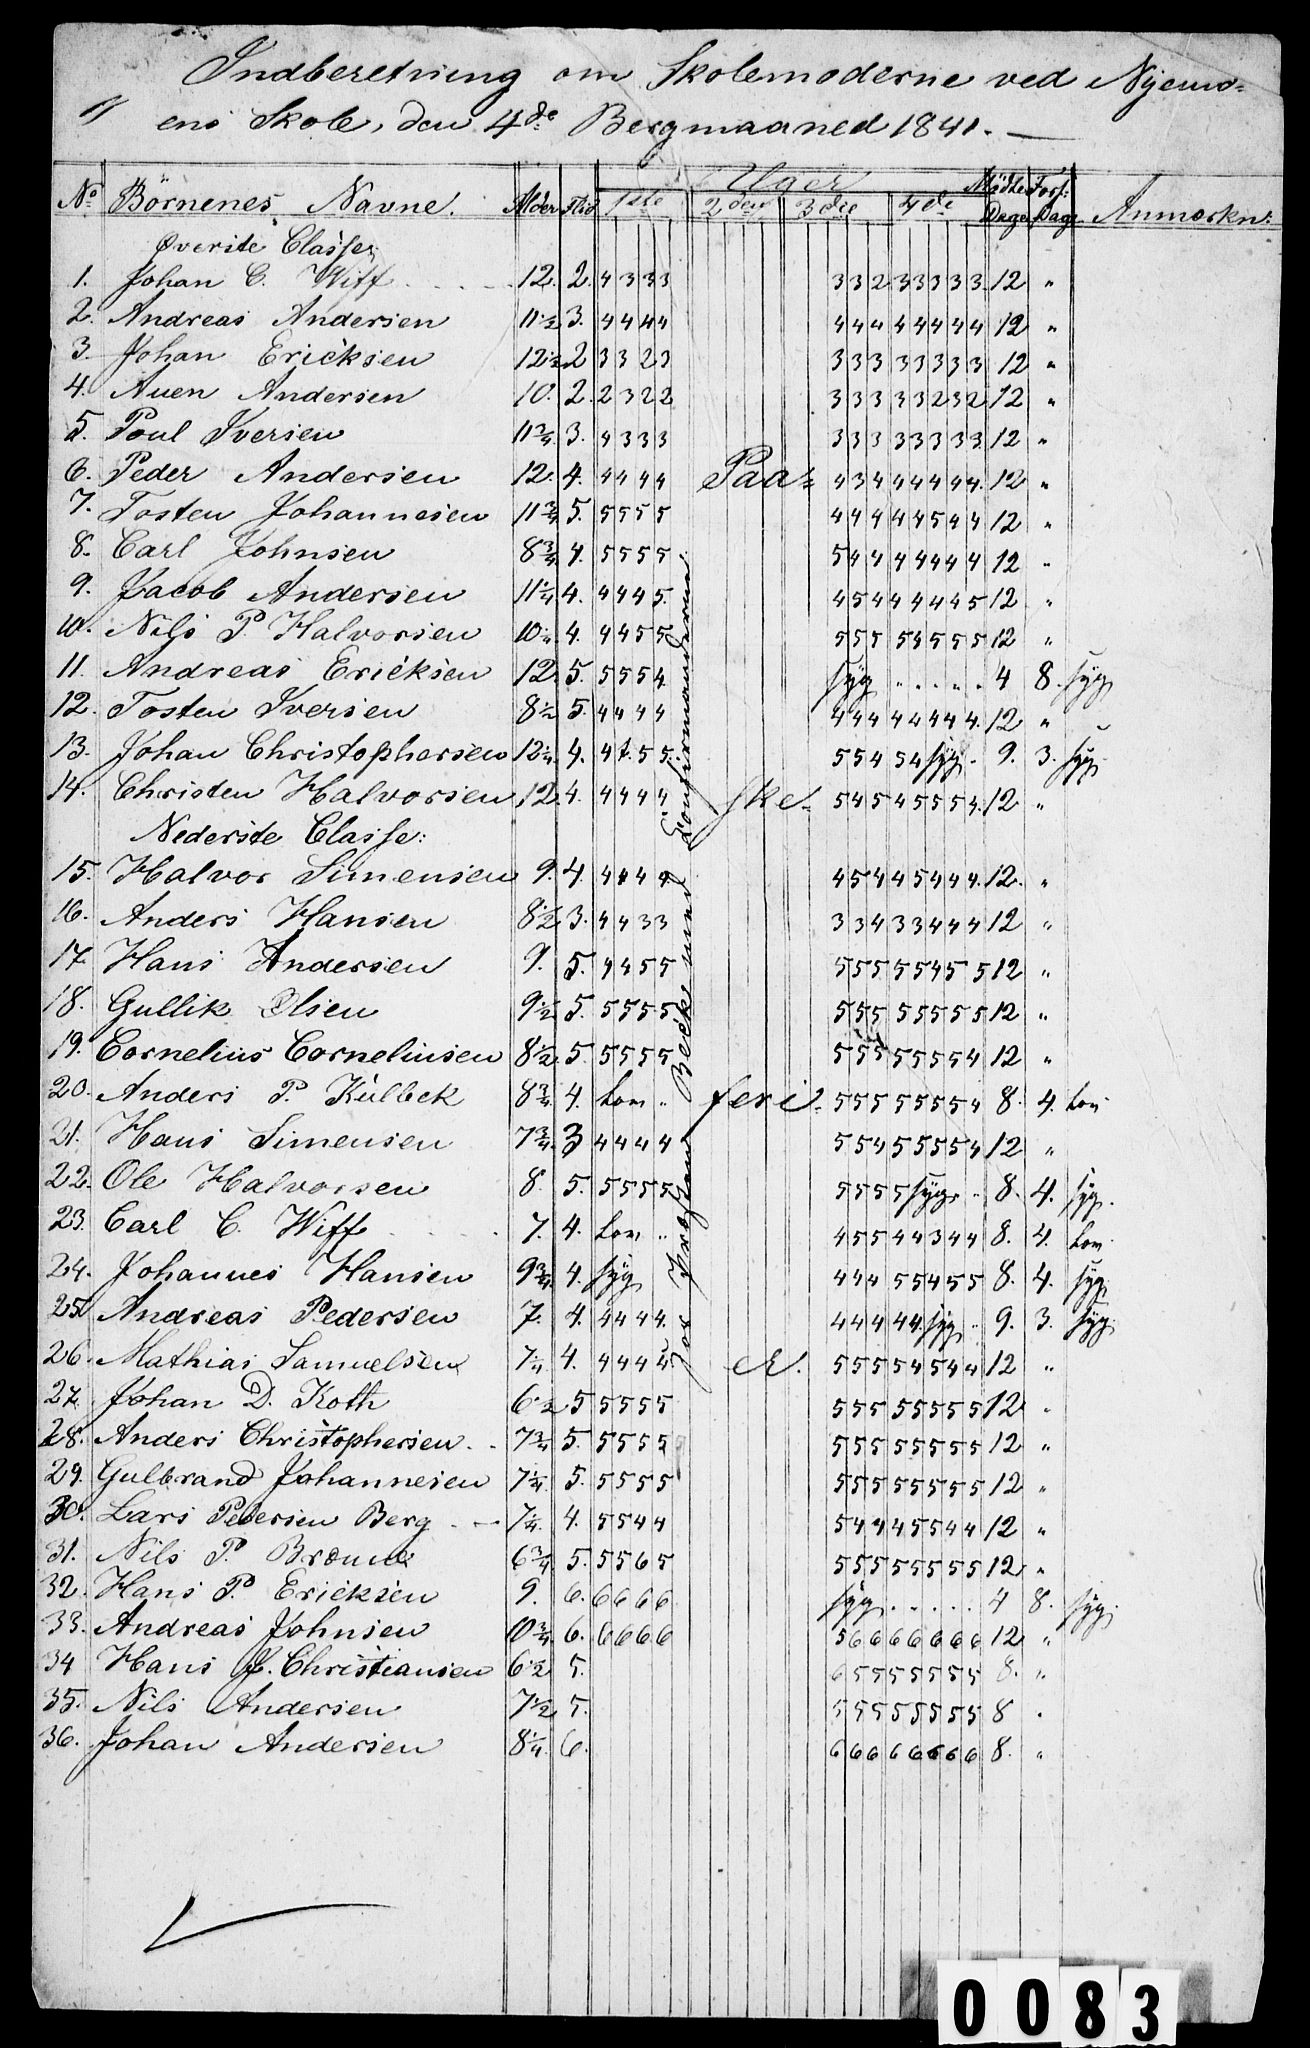 1) Indberetning om Skolemoderne ved Nyemo-
ens Skole, den 4de Bergmaaned 1841. —
No Börnenes Navne. Alder Flid Uger 1ste 2den 3die 4de Mödte Dage Fors: Dage Anmærkn:
Överste Classe:
1. Johan C. Wiff 12. 2. 4 3 3 3 3 3 2 3 3 3 3 3. 12 "
2. Andreas Andersen 11 1/2 3. 4 4 4 4 4 4 4 4 4 4 4 4 12 "
3. Johan Ericksen 12 1/2 2 3 3 2 3 3 3 3 3 3 3 3 3 12 "
4. Auen Andersen 10. 2. 2 3 2 2 3 3 3 3 3 2 3 2 12 "
5. Poul Iversen 11 3/4 3. 4 3 3 3 3 3 3 3 3 3 3 3 12 "
6. Peder Andersen 12. 4. 4 4 4 4 Paa- 4 3 4 4 4 4 4 4. 12 "
7. Tosten Johannesen 11 3/4 5. 5 5 5 5 4 4 4 4 4 5 4 4 12 "
8. Carl Johnsen 8 3/4 4. 5 5 5 5 5 4 4 4 4 4 4 4 12 "
9. Jacob Andersen 11 1/4 4. 4 4 4 5. 4 5 4 4 4 4 4 5 12 "
10. Nils P. Halvorsen 10 1/4 4. 4 4 5 5 5 5 5 5 4 5 5 5 12 "
11. Andreas Ericksen 12. 5. 5 5 5 4 syg . . . . . 4 8. syg
12. Tosten Iversen 8 1/2 5. 4 4 4 4 4 4 4 4 4 4 4 4. 12 "
13. Johan Christophersen 12 1/4 4. 4 4. 5 5. 5 5 4 5 4 syg. 9. 3. syg
14. Christen Halvorsen 12. 4. 4 4 4 4 ske- 5 4 5 4 5 5 5 4. 12 "
Nederste Classe:
15. Halvor Simensen 9. 4. 4 4 4 4 4 5 4 4 5 4 4 4. 12. "
16. Anders Hansen 8 1/2 3. 4 4 3 3 3 3 4 3 3 4 4 4 12 "
17. Hans Andersen 9. 5. 4 4 5 5 5 5 5 5 5 4 5 5 12 "
18. Gullik Olsen 9 1/2 5. 5 5 5 5 5 5 5 5 5 5 5 5 12 "
19. Cornelius Corneliusen 8 1/2 5. 5 5 5 5 5 5 5 5 5 5 5 4 12 "
20. Anders P. Külbek 8 3/4 4. Lov " feri- 5 5 5 5 5 5 5 4 8. 4. Lov
21. Hans Simensen 7 3/4 3 4 4 4 4 5 5 4 5 5 5 5 4 12 "
22. Ole Halvorsen 8. 5. 5 5 5 5 5 5 5 5 syg. " 8. 4. syg.
23. Carl C. Wiff 7. 4. Lov " 4 5 5 4 4 3 4 4 8. 4. Lov
24. Johannes Hansen 9 3/4 4. syg 4 4 4 5 5 4 5 5 8. 4. syg
25. Andreas Pedersen 7. 4. 4 4 4 4. 4 4 4 4 4. syg " 9. 3. syg
26. Mathias Samuelsen 7 1/4 4. 4 4 4 4 er. 5 5 5 5 4 5 4 4 12 "
27. Johan D. Koth 6 1/2 5 5 5 5 5 5 5 5 5 5 5 5 5 12 "
28. Anders Christophersen. 7 3/4 5. 5 5 5 5 5 5 5 5 5 5 5 5 12 "
29. Gulbrand Johannesen 7 1/4 5. 5 5 5 5 5 5 5 5 5 5 5 5 12 "
30. Lars Pedersen Berg 7 1/4. 4. 5 5 4 4 5 4 4 4 5 5 4 4 12 "
31. Nils P. Bromnes 6 3/4 5. 5 5 6 5 5 5 5 5 5 5 5 5 12 "
32. Hans P. Ericksen 9. 6. 6 6 6 6 syg . . . . . 4 8. syg.
33. Andreas Johnsen 10 3/4 6. 6 6 6 6 5 6 6 6 6 6 6 6 12 "
34 Hans J. Christiansen 6 1/2 5. 6 5 5 5 5 5 5 5 8. "
35. Nils Andersen 7 1/2 5. 5 5 5 5 5 5 5 5 8 "
36. Johan Andersen 8 1/4. 6. 6 6 6 6 6 6 6 6 8. "
Hos Provsten Beck med Confirmanderne.
0083